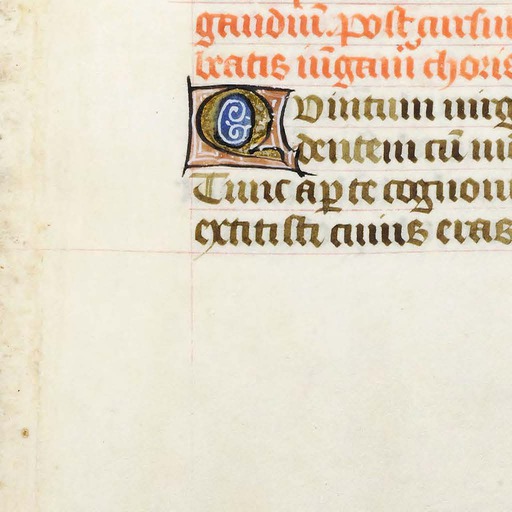 gaudiū. post cursum
beatis iūgam̄ choris
Quintum virg
dentem cū
Tunc a p te cognom
extitisti cuius eras